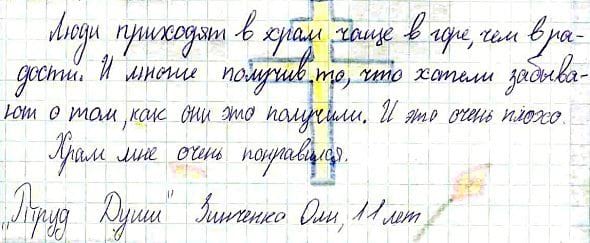 Люди приходят в храм чаще в горе, чем в ра-
дости. И многие получив то, что хотели забыва-
ют о том, как они это получили. И это очень плохо.
Храм мне очень понравился.
„Труд Души" Зинченко Оли, 11 лет